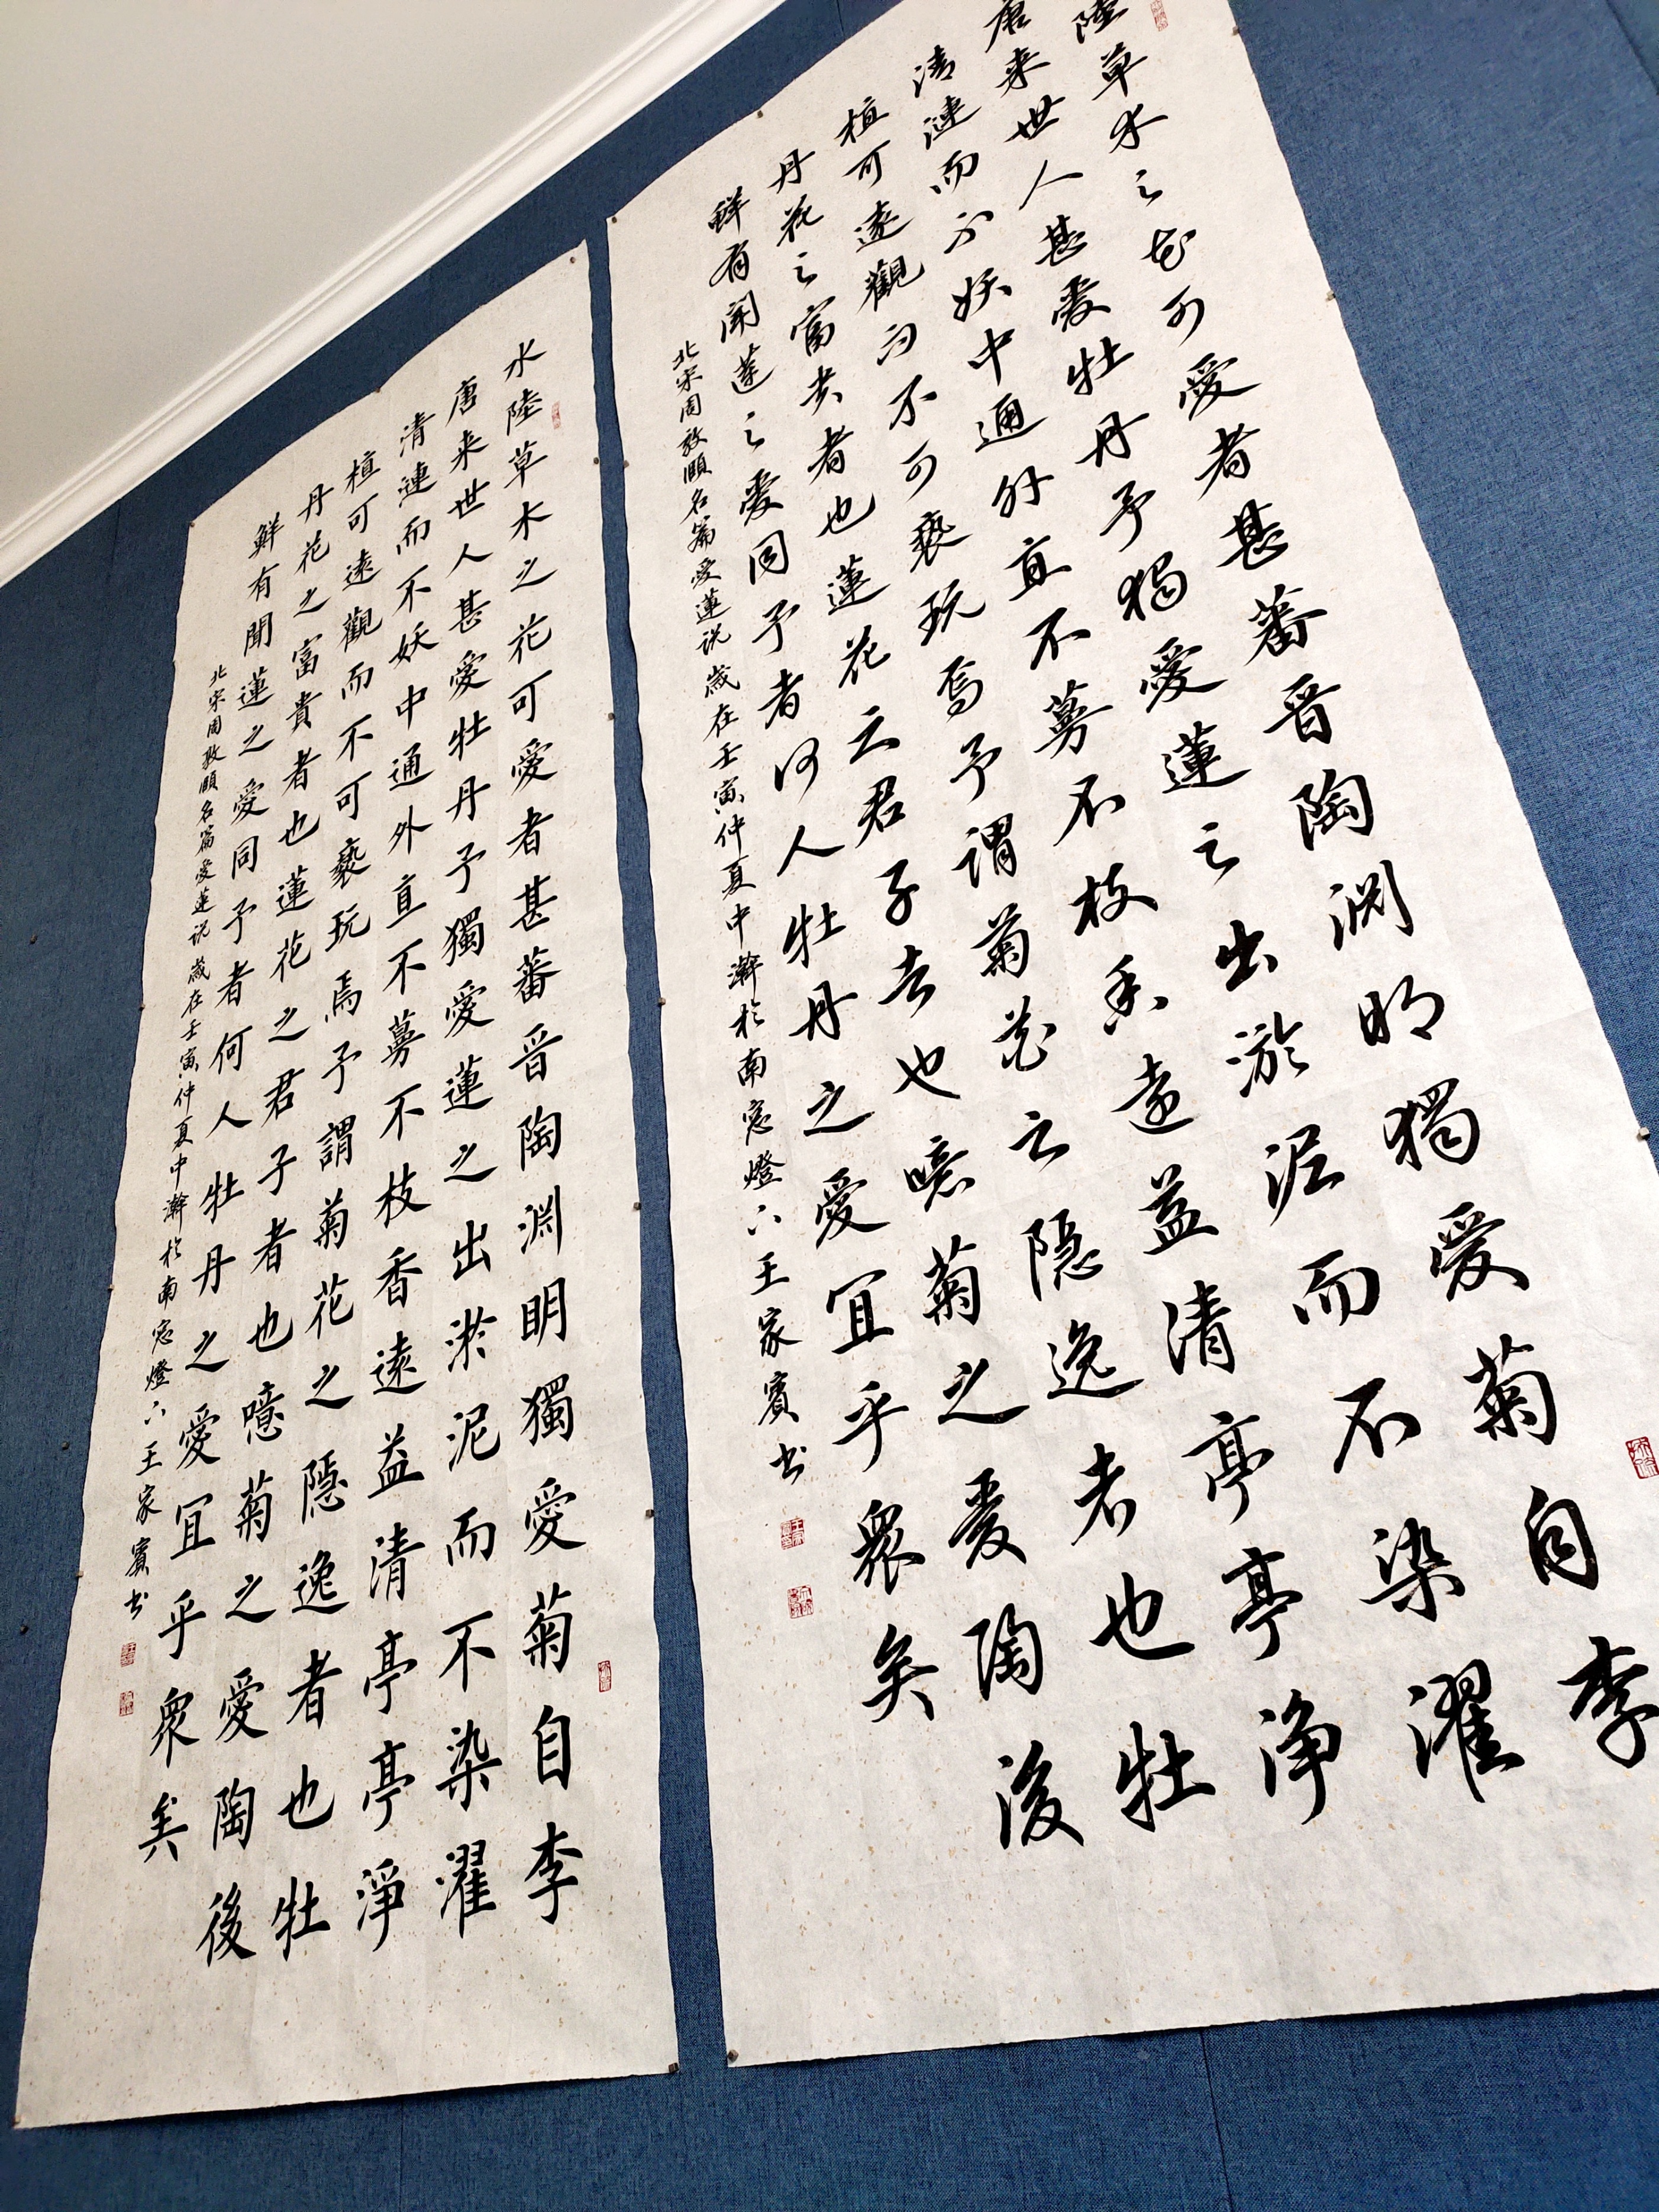 陸草木之花可愛者甚蕃晉陶渊明獨愛菊自李
唐来世人甚愛牡丹予獨愛蓮之出淤泥而不染濯
清漣而不妖中通外直不蔓不枝香遠益清亭亭淨
植可遠觀而不可褻玩焉予謂菊花之隱逸者也牡
丹花之富贵者也蓮花之君子者也噫菊之愛陶後
鮮有聞蓮之愛同予者何人牡丹之愛宜乎衆矣
北宋周敦頤名篇愛蓮说歲在壬寅仲夏中澣於南窓燈下王家賓书
水陸草木之花可愛者甚蕃晉陶渊明獨愛菊自李
唐来世人甚愛牡丹予獨愛蓮之出淤泥而不染濯
清漣而不妖中通外直不蔓不枝香遠益清亭亭淨
植可遠觀而不可褻玩焉予謂菊花之隱逸者也牡
丹花之富貴者也蓮花之君子者也噫菊之愛陶後
鮮有聞蓮之愛同予者何人牡丹之愛宜乎衆矣
北宋周敦頤名篇愛蓮说歲在壬寅仲夏中澣於南窓燈下王家賓书